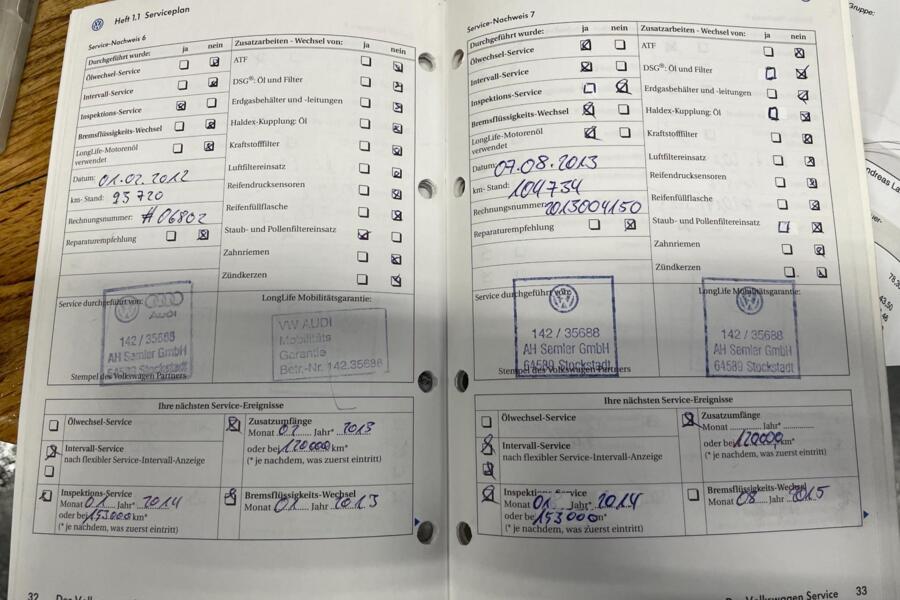 Heft 1.1 Serviceplan
Service-Nachweis 6
Durchgeführt wurde: ja nein
Ölwechsel-Service
Intervall-Service
Inspektions-Service
Bremsflüssigkeits-Wechsel
LongLife-Motorenöl
verwendet
Datum: 01.02.2012
km- Stand: 93 720
Rechnungsnummer: #06802
Reparaturempfehlung
Zusatzarbeiten - Wechsel von: ja nein
ATF
DSG®: Öl und Filter
Erdgasbehälter und -leitungen
Haldex-Kupplung: Öl
Kraftstofffilter
Luftfiltereinsatz
Reifendrucksensoren
Reifenfüllflasche
Staub- und Pollenfiltereinsatz
Zahnriemen
Zündkerzen
Service durchgeführt von:
Audi
142 / 35688
AH Semler GmbH
64589 Stockstadt
Stempel des Volkswagen Partners
LongLife Mobilitätsgarantie:
VW AUDI
Mobilitäts
Garantie
Betr.-Nr. 142.35688
Ihre nächsten Service-Ereignisse
Ölwechsel-Service
Intervall-Service
nach flexibler Service-Intervall-Anzeige
Zusatzumfänge
Monat 02 Jahr* 2013
oder bei 120000 km*
(* je nachdem, was zuerst eintritt)
Inspektions-Service
Monat 01 Jahr* 2014
oder bei 153000 km*
(* je nachdem, was zuerst eintritt)
Bremsflüssigkeits-Wechsel
Monat 01 Jahr 2013
32
Service-Nachweis 7
Durchgeführt wurde: ja nein
Ölwechsel-Service
Intervall-Service
Inspektions-Service
Bremsflüssigkeits-Wechsel
LongLife-Motorenöl
verwendet
Datum: 07.08.2013
km- Stand: 104734
Rechnungsnummer: 2013004150
Reparaturempfehlung
Zusatzarbeiten - Wechsel von: ja nein
ATF
DSG®: Öl und Filter
Erdgasbehälter und -leitungen
Haldex-Kupplung: Öl
Kraftstofffilter
Luftfiltereinsatz
Reifendrucksensoren
Reifenfüllflasche
Staub- und Pollenfiltereinsatz
Zahnriemen
Zündkerzen
Service durchgeführt von:
142 / 35688
AH Semler GmbH
64589 Stockstadt
Stempel des Volkswagen Partners
LongLife Mobilitätsgarantie:
142 / 35688
AH Semler GmbH
64589 Stockstadt
Ihre nächsten Service-Ereignisse
Ölwechsel-Service
Intervall-Service
nach flexibler Service-Intervall-Anzeige
Zusatzumfänge
Monat Jahr*
oder bei 120000 km*
(* je nachdem, was zuerst eintritt)
Inspektions-Service
Monat 01 Jahr* 2014
oder bei 153000 km*
(* je nachdem, was zuerst eintritt)
Bremsflüssigkeits-Wechsel
Monat 08 Jahr 2015
Volkswagen Service 33
Gruppe: